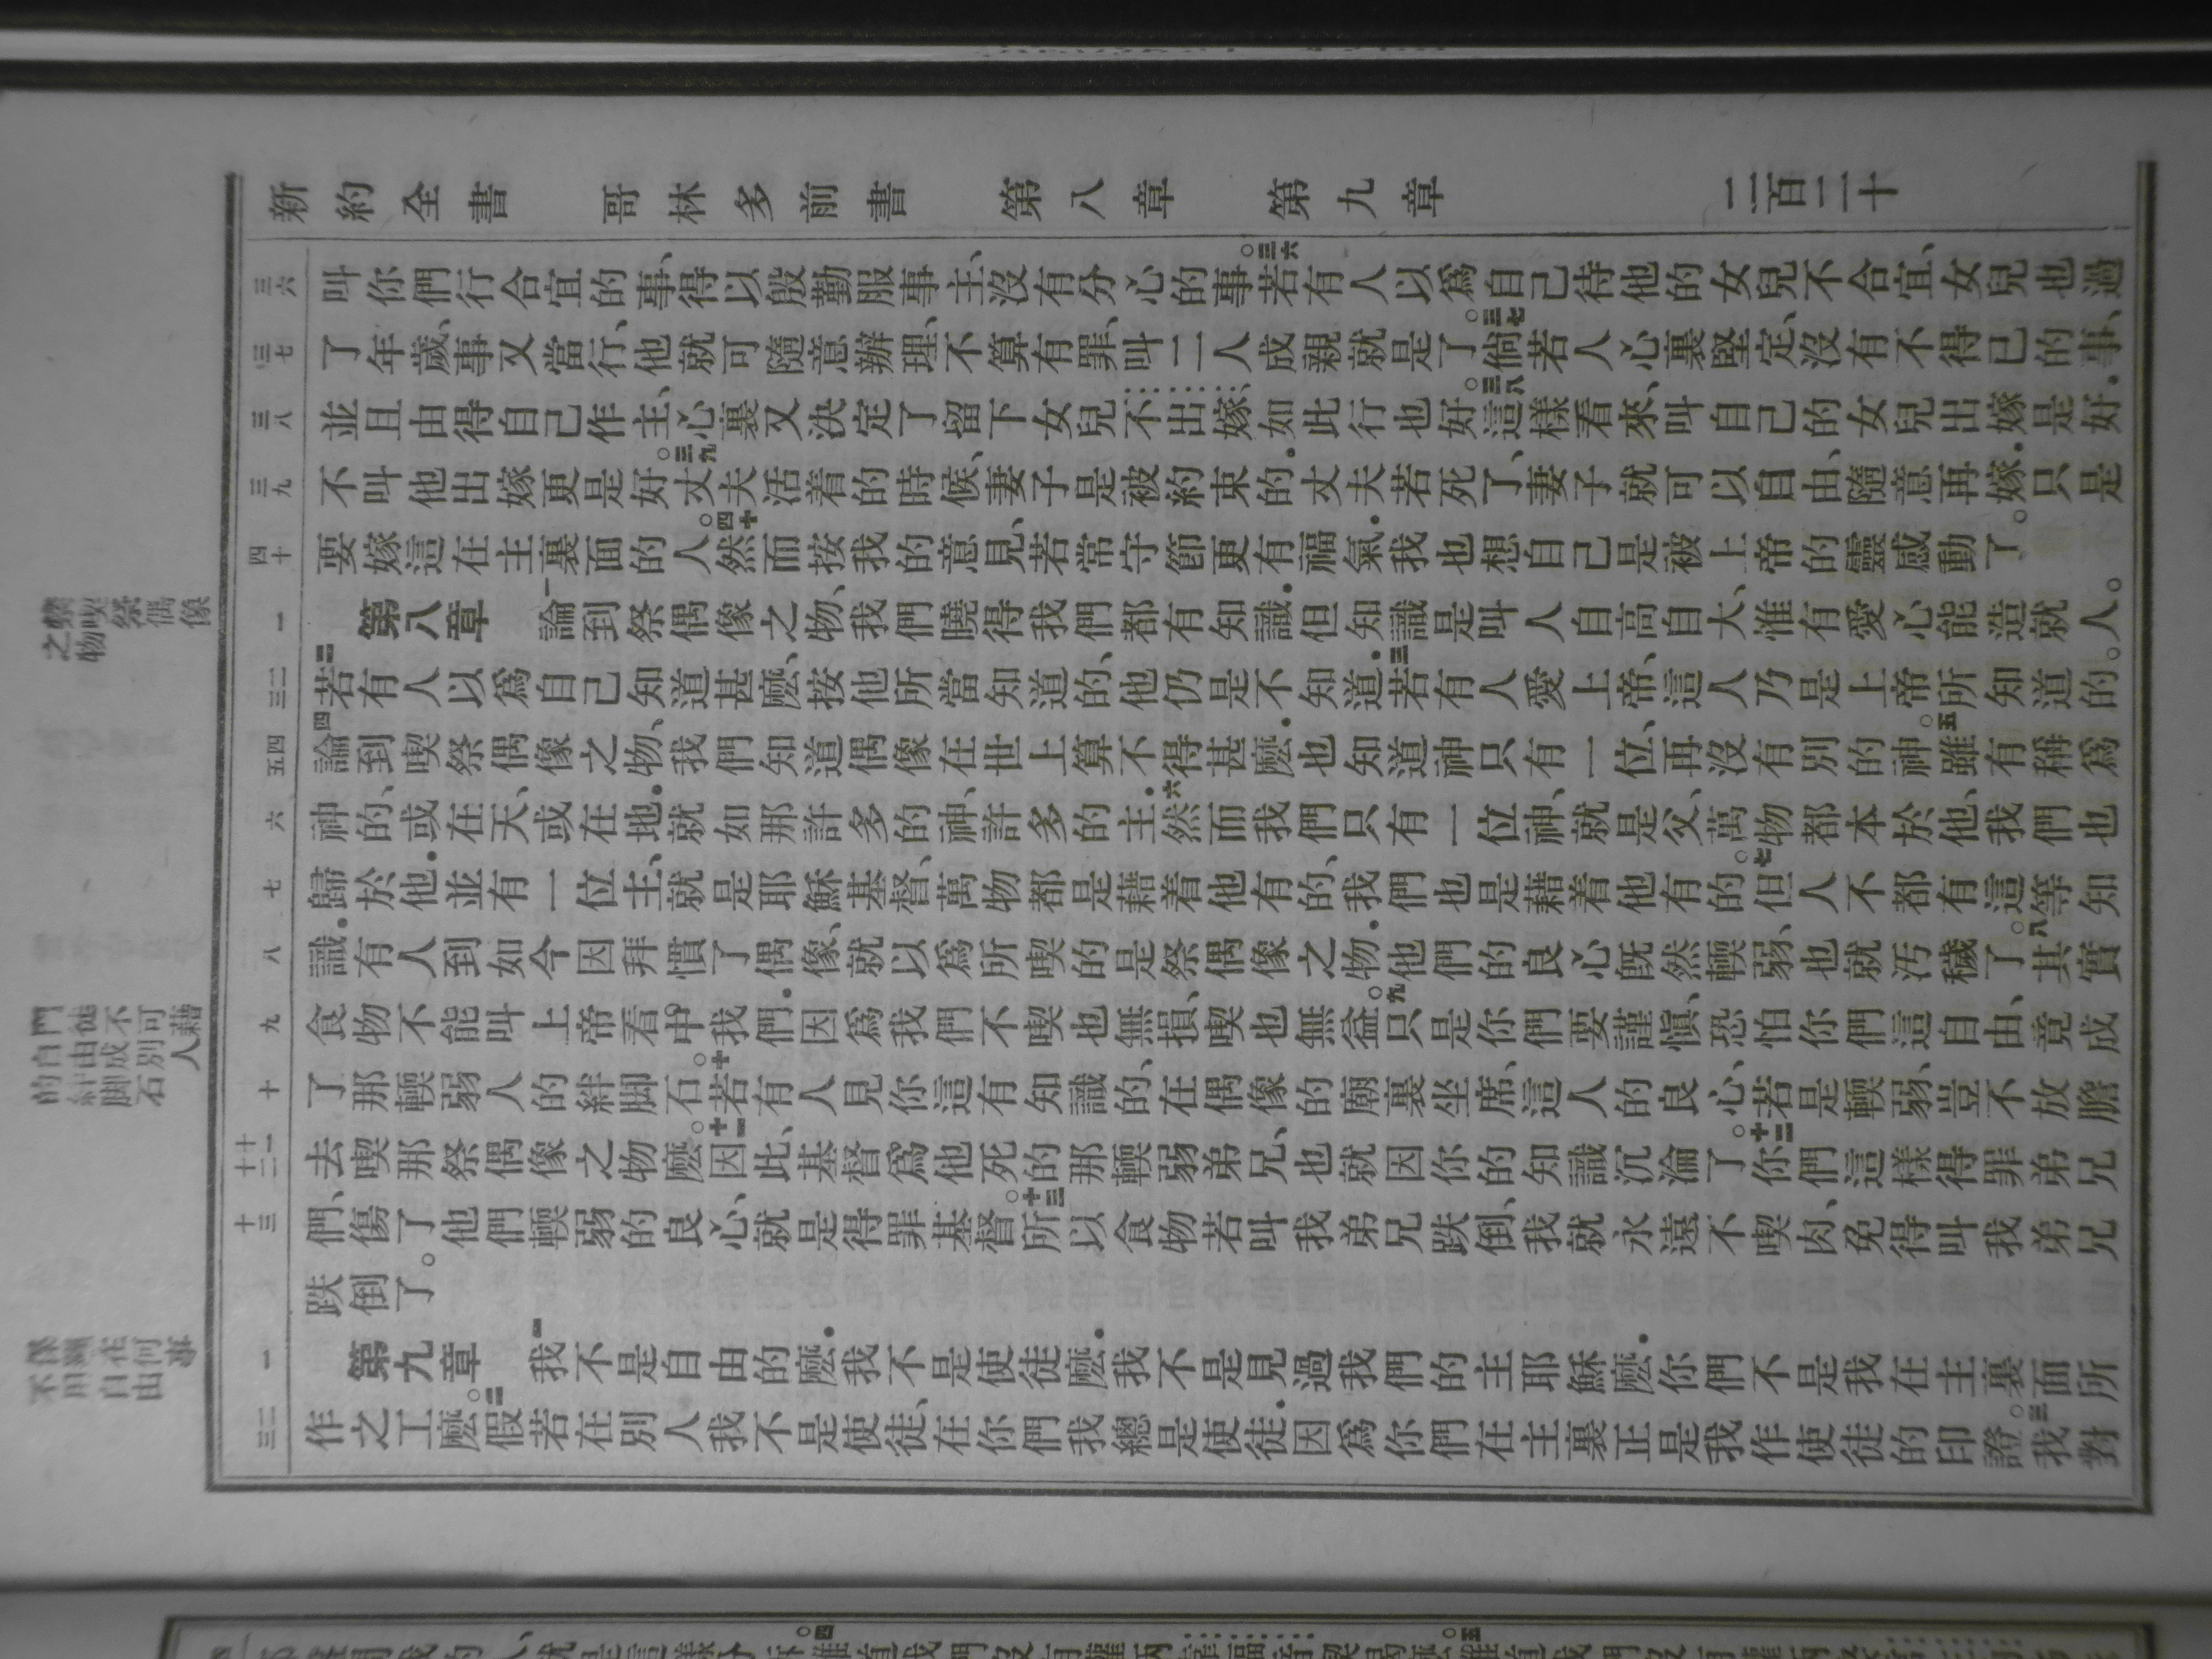 新約全書 哥林多前書 第八章 第九章 二百二十
叫你們行合宜的事、得以殷勤服事主、沒有分心的事。三六若有人以爲自己待他的女兒不合宜、女兒也過
了年歲、事又當行、他就可隨意辦理、不算有罪、叫二人成親就是了。三七倘若人心裏堅定、沒有不得已的事、
並且由得自己作主、心裏又決定了留下女兒不出嫁、如此行也好。三八這樣看來、叫自己的女兒出嫁是好.
不叫他出嫁更是好。三九丈夫活着的時候、妻子是被約束的.丈夫若死了、妻子就可以自由、隨意再嫁.只是
要嫁這在主裏面的人。四十然而按我的意見、若常守節更有福氣.我也想自己是被上帝的靈感動了。
第八章 一論到祭偶像之物、我們曉得我們都有知識.但知識是叫人自高自大、惟有愛心能造就人。
二若有人以爲自己知道甚麽、按他所當知道的、他仍是不知道.三若有人愛上帝、這人乃是上帝所知道的。
四論到喫祭偶像之物、我們知道偶像在世上算不得甚麽.也知道神只有一位、再沒有別的神。五雖有稱爲
神的、或在天、或在地.就如那許多的神、許多的主.六然而我們只有一位神、就是父、萬物都本於他、我們也
歸於他.並有一位主、就是耶穌基督、萬物都是藉着他有的、我們也是藉着他有的。七但人不都有這等知
識.有人到如今因拜慣了偶像、就以爲所喫的是祭偶像之物.他們的良心既然輭弱、也就汚穢了。八其實
食物不能叫上帝看中我們.因爲我們不喫也無損、喫也無益。九只是你們要謹愼、恐怕你們這自由、竟成
了那輭弱人的絆脚石。十若有人見你這有知識的、在偶像的廟裏坐席、這人的良心、若是輭弱、豈不放膽
去喫那祭偶像之物麽。十一因此、基督爲他死的那輭弱弟兄、也就因你的知識沉淪了。十二你們這樣得罪弟兄
們、傷了他們輭弱的良心、就是得罪基督。十三所以食物若叫我弟兄跌倒、我就永遠不喫肉、免得叫我弟兄
跌倒了。
第九章 一我不是自由的麽.我不是使徒麽.我不是見過我們的主耶穌麽.你們不是我在主裏面所
作之工麽。二假若在別人我不是使徒、在你們我總是使徒.因爲你們在主裏正是我作使徒的印證。三我對
三六
三七
三八
三九
四十
一
二三
四五
六
七
八
九
十
十一十二
十三
一
二三